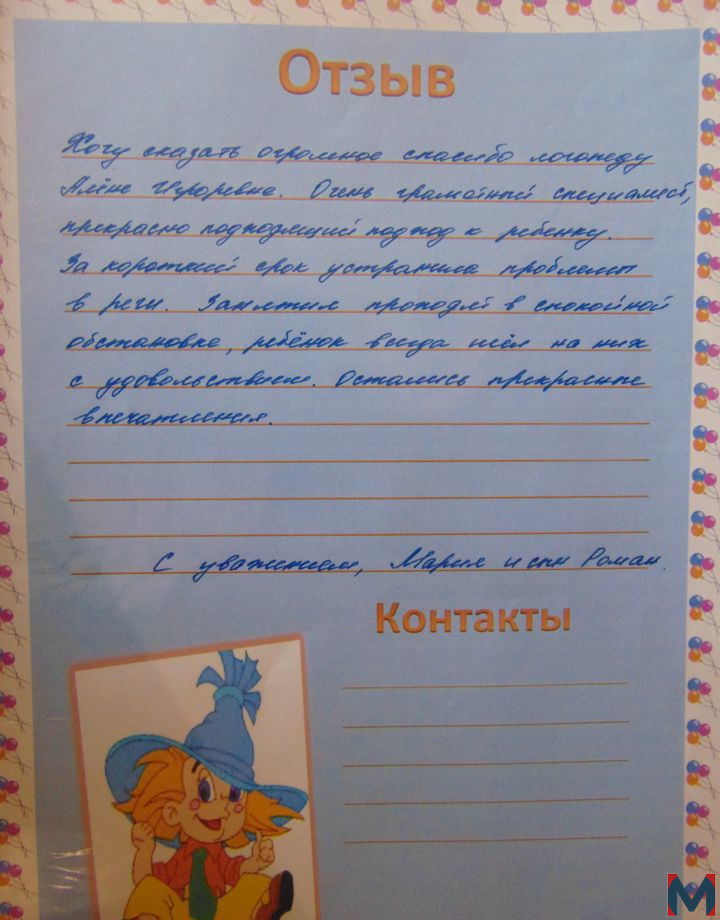 Отзыв
Хочу сказать огромное спасибо логопеду
Алёне Игоревне. Очень грамотный специалист,
прекрасно подходящий подход к ребенку.
За короткий срок устранила проблемы
в речи. Занятия проходят в спокойной
обстановке, ребёнок всегда шёл на них
с удовольствием. Остались прекрасные
впечатления.
С уважением, Мария и сын Роман.
Контакты
M